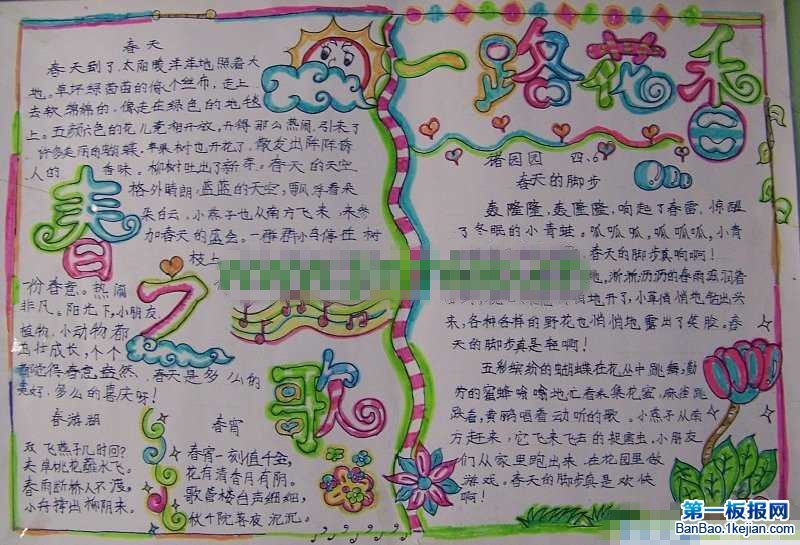 春天
春天到了,太阳暖洋洋地照着大
地。草坪绿茵茵的像个丝布,走上
去软绵绵的,像走在绿色的地毯
上。五颜六色的花儿竞相开放,开得那么热闹,引来了
许多美丽的蝴蝶,苹果树也开花了,散发出阵阵
人的 香味。柳树吐出了新芽。春天的天空
格外晴朗,蓝蓝的天空,飘浮着朵
朵白云,小燕子也从南方飞来,来参
加春天的盛会。一群小鸟停在树
枝上
份春意。热闹
非凡。阳光下,小朋友,
植物,小动物都
茁壮成长,个个
春意盎然,春天是多么的
美好,多么的喜庆呀!
春之歌
春游湖
双飞燕子几时回?
夹岸桃花蘸水飞。
春雨断桥人不渡,
小舟撑出柳阴来。
春宵
春宵一刻值千金,
花有清香月有阴。
歌管楼台声细细,
秋千院落夜沉沉。
一路花香
褚园园 四.6
春天的脚步
轰隆隆,轰隆隆,响起了春雷,惊醒
了冬眠的小青蛙。呱呱呱,呱呱呱,小青
春天的脚步真响啊!
地,淅淅沥沥的春雨滋润着
悄地开了,小草悄悄地钻出头
来,各种各样的野花也悄悄地露出了笑脸。春
天的脚步真是轻啊!
五彩缤纷的蝴蝶在花丛中跳舞,勤
劳的蜜蜂嗡嗡地忙着采集花蜜,麻雀跳
跃着,黄鹂唱着动听的歌。小燕子从南
方赶来,它飞来飞去的捉害虫,小朋友
们从家里跑出来,在花园里做
游戏。春天的脚步真是欢快
啊!
第一板报网
BanBao.1kejian.com